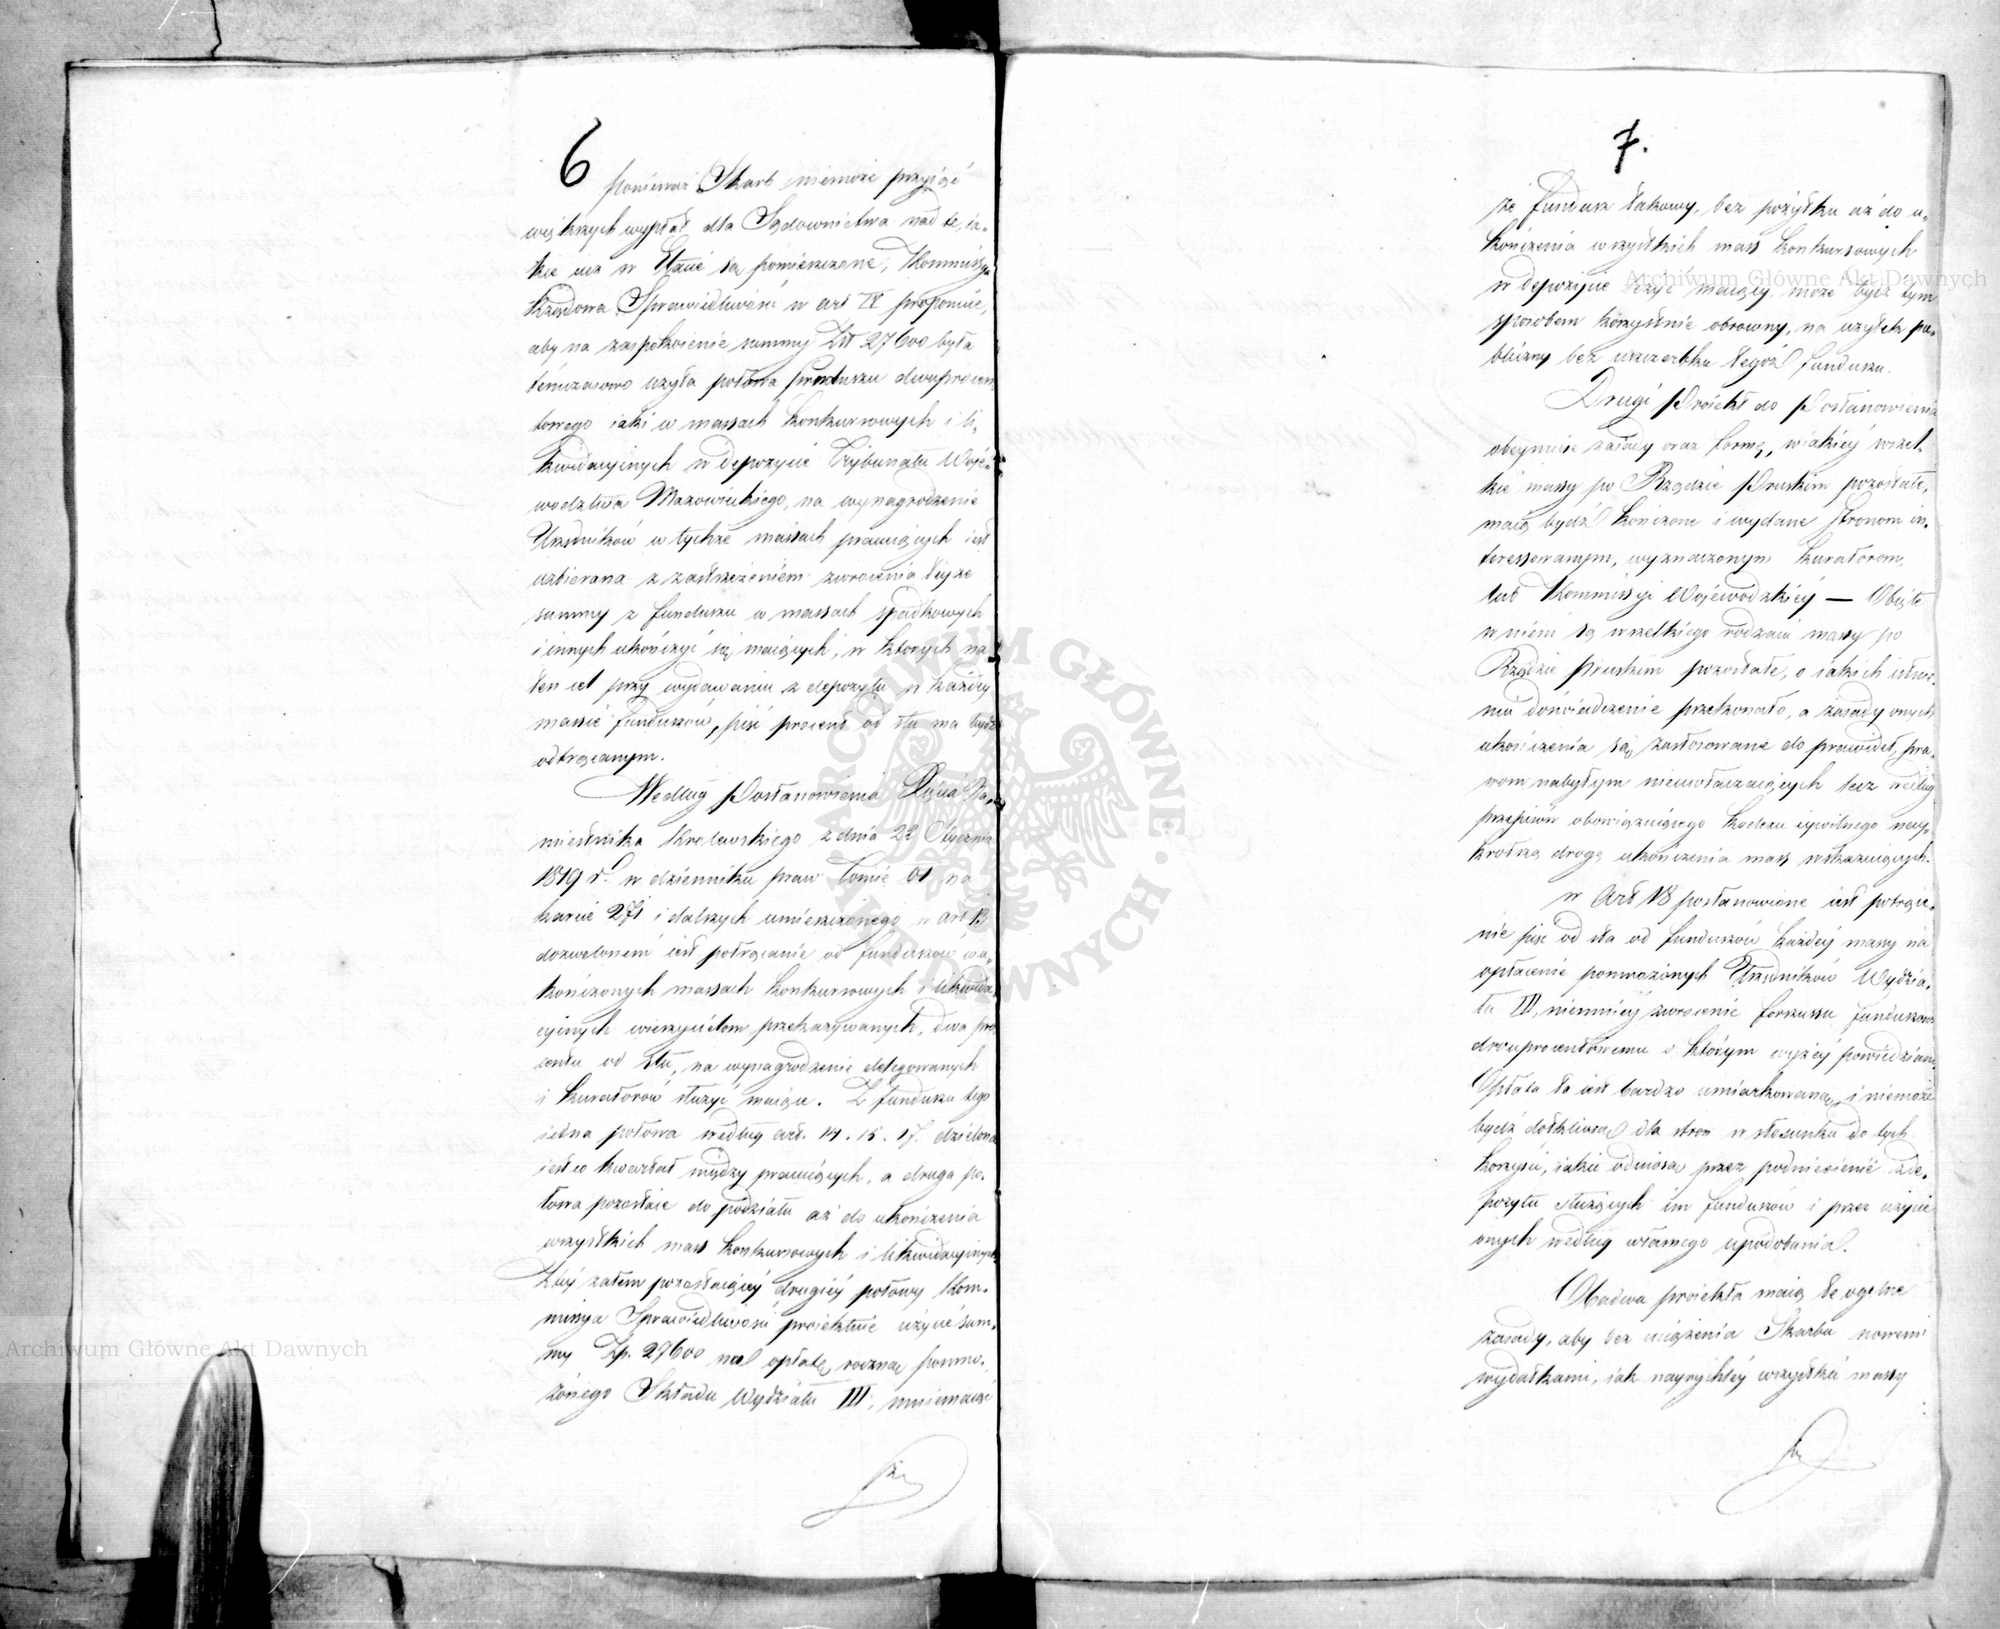 6
ponieważ Skarb niemoże przyjąć
większych wypłat dla Sądownictwa nad te, ia-
kie iuż w Etacie są pomieszczone, Kommissya
Rządowa Sprawiedliwości w art IV proponuie,
aby na zaspokoienie summy Złt 27600 była
tymczasowo użyta połowa funduszu dwuprocen
towego iaki w massach konkursowych i li-
kwidacyjnych w depozycie Trybunału Woje-
wodztwa Mazowieckiego, na wynagrodzenie
Urzędników w tychże massach pracuiących iest
uzbierana z zastrzeżeniem zwrócenia teyże
summy z funduszu w massach spadkowych
i innych ukończyć się maiących, w których na
ten cel przy wydawaniu z depozytu w każdey
massie funduszów, pięć procent od sta ma bydź
odtrącanym.
Według Postanowienia Xięcia Na-
miestnika Krolewskiego z dnia 22 Stycznia
1819 r. w dzienniku praw Tomie VI na
karcie 271 i dalszych umieszczonego w art 13
dozwolonem iest potrącanie od funduszów w u-
kończonych massach konkursowych i likwida-
cyjnych wierzycielom przekazywanych, dwa pro
centu od sta, na wynagrodzenie delegowanych
i kuratorów służyć maiące. Z funduszu tego
iedna połowa według art. 14. 15. 17. dzielona
iest co kwartał między pracuiących, a druga po-
łowa pozostaie do podziału aż do ukończenia
wszystkich mass konkursowych i likwidacyjnych.
Z tey zatem pozostaiącey drugiey połowy Kom-
missya Sprawiedliwości proiektuie użycie sum-
my Zp. 27600 na opłatę roczną pomno-
żonego Składu Wydziału III, mniemaiąc
7.
że fundusz takowy, bez pożytku aż do u-
kończenia wszystkich mass konkursowych
w depozycie leżyć maiący, może bydź tym
sposobem korzystnie obrócony, na użytek pu-
bliczny bez uszczerbku tegoż funduszu.
Drugi Proiekt do Postanowienia
obeymuie zasady oraz formę, w iakiey wszel-
kie massy po Rządzie Pruskim pozostałe,
maią bydź kończone i wydane stronom in-
teressowanym, wyznaczonym kuratorom,
lub Kommissyi Wojewodzkiey — Obięte
w niem są wszelkiego rodzaiu massy po
Rządzie Pruskim pozostałe, o iakich istnie-
niu doświadczenie przekonało, a zasady onych
ukończenia są zastosowane do prawideł, pra-
wom nabytym nieuwłaczaiących lecz według
przepisów obowiązuiącego kodexu cywilnego nay-
krotszą drogę ukończenia mass wskazuiących.
w Art 18 postanowione iest potrące-
nie pięć od sta od funduszów każdey massy na
opłacenie pomnożonych Urzędników Wydzia-
łu III, niemniey zwrócenie forszusu funduszowi
dwuprocentowemu o którym wyżey powiedziano.
Opłata ta iest bardzo umiarkowaną, i niemoże
bydź dotkliwą dla stron w stosunku do tych
korzyści, iakie odniosą przez podniesienie z de-
pozytu służących im funduszów i przez użycie
onych według własnego upodobania.
Obadwa proiekta maią te ogólne
zasady, aby bez uciążenia Skarbu nowemi
wydatkami, iak nayrychley wszystkie massy
Archiwum Główne Akt Dawnych
Archiwum Główne Akt Dawnych
ARCHIWUM GŁÓWNE AKT DAWNYCH